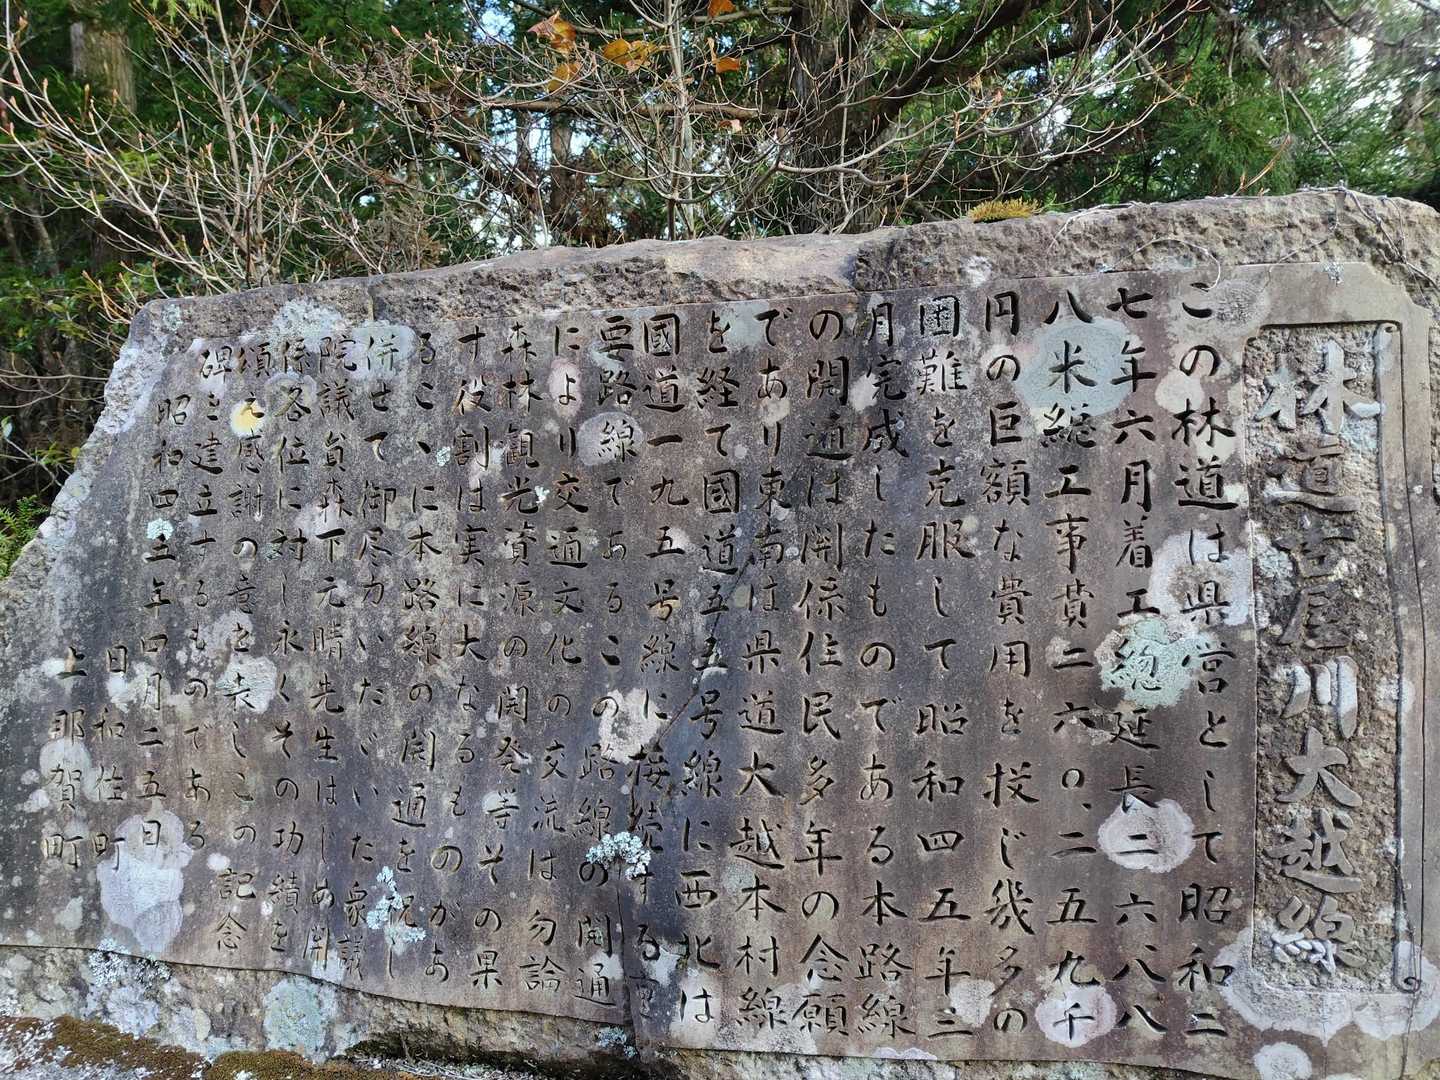 林道古屋川大越線
この林道は県営として昭和二
七年六月着工総延長二六八八
八米総工事費二六〇、二五九千
円の巨額な費用を投じ幾多の
困難を克服して昭和四五年三
月完成したものである本路線
の開通は関係住民多年の念願
であり東南は県道大越本村線
を経て國道五五号線に西北は
國道一九五号線に接続する重
要路線であるこの路線の開通
により交通文化の交流は勿論
森林観光資源の開発等その果
す役割は実に大なるものがあ
るこゝに本路線の開通を祝し
併せて御尽力いただいた衆議
院議員森下元晴先生はじめ関
係各位に対し永くその功績を
頌え感謝の意を表しこの記念
碑を建立するものである
昭和四五年四月二五日
日和佐町
上那賀町